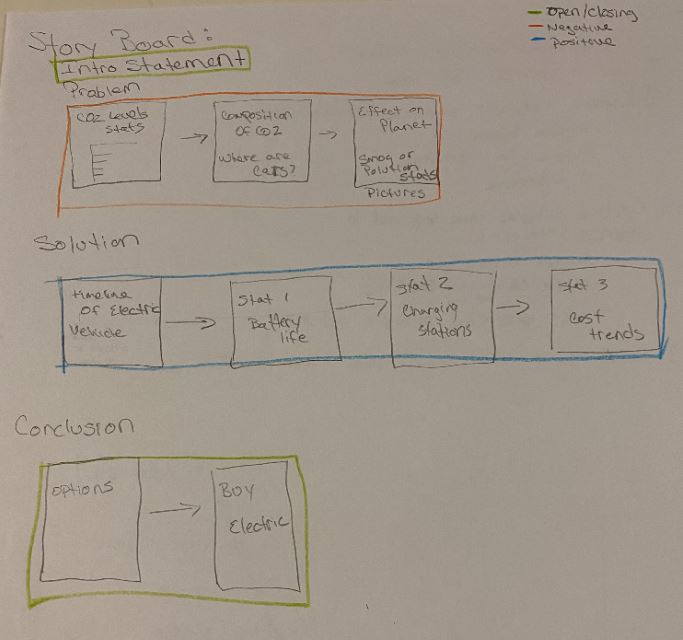 Open/closing
Negative
Positive
Story Board:
Intro Statement
Problem
CO2 Levels
stats
Composition
OF CO2
Where are
cars?
Effect on
Planet
Smog or
Polution
stats
Pictures
Solution
timeline
OF Electric
Vehicle
Stat 1
Battery
life
Stat 2
Charging
Stations
Stat 3
Cost
trends
Conclusion
Options
Buy
Electric